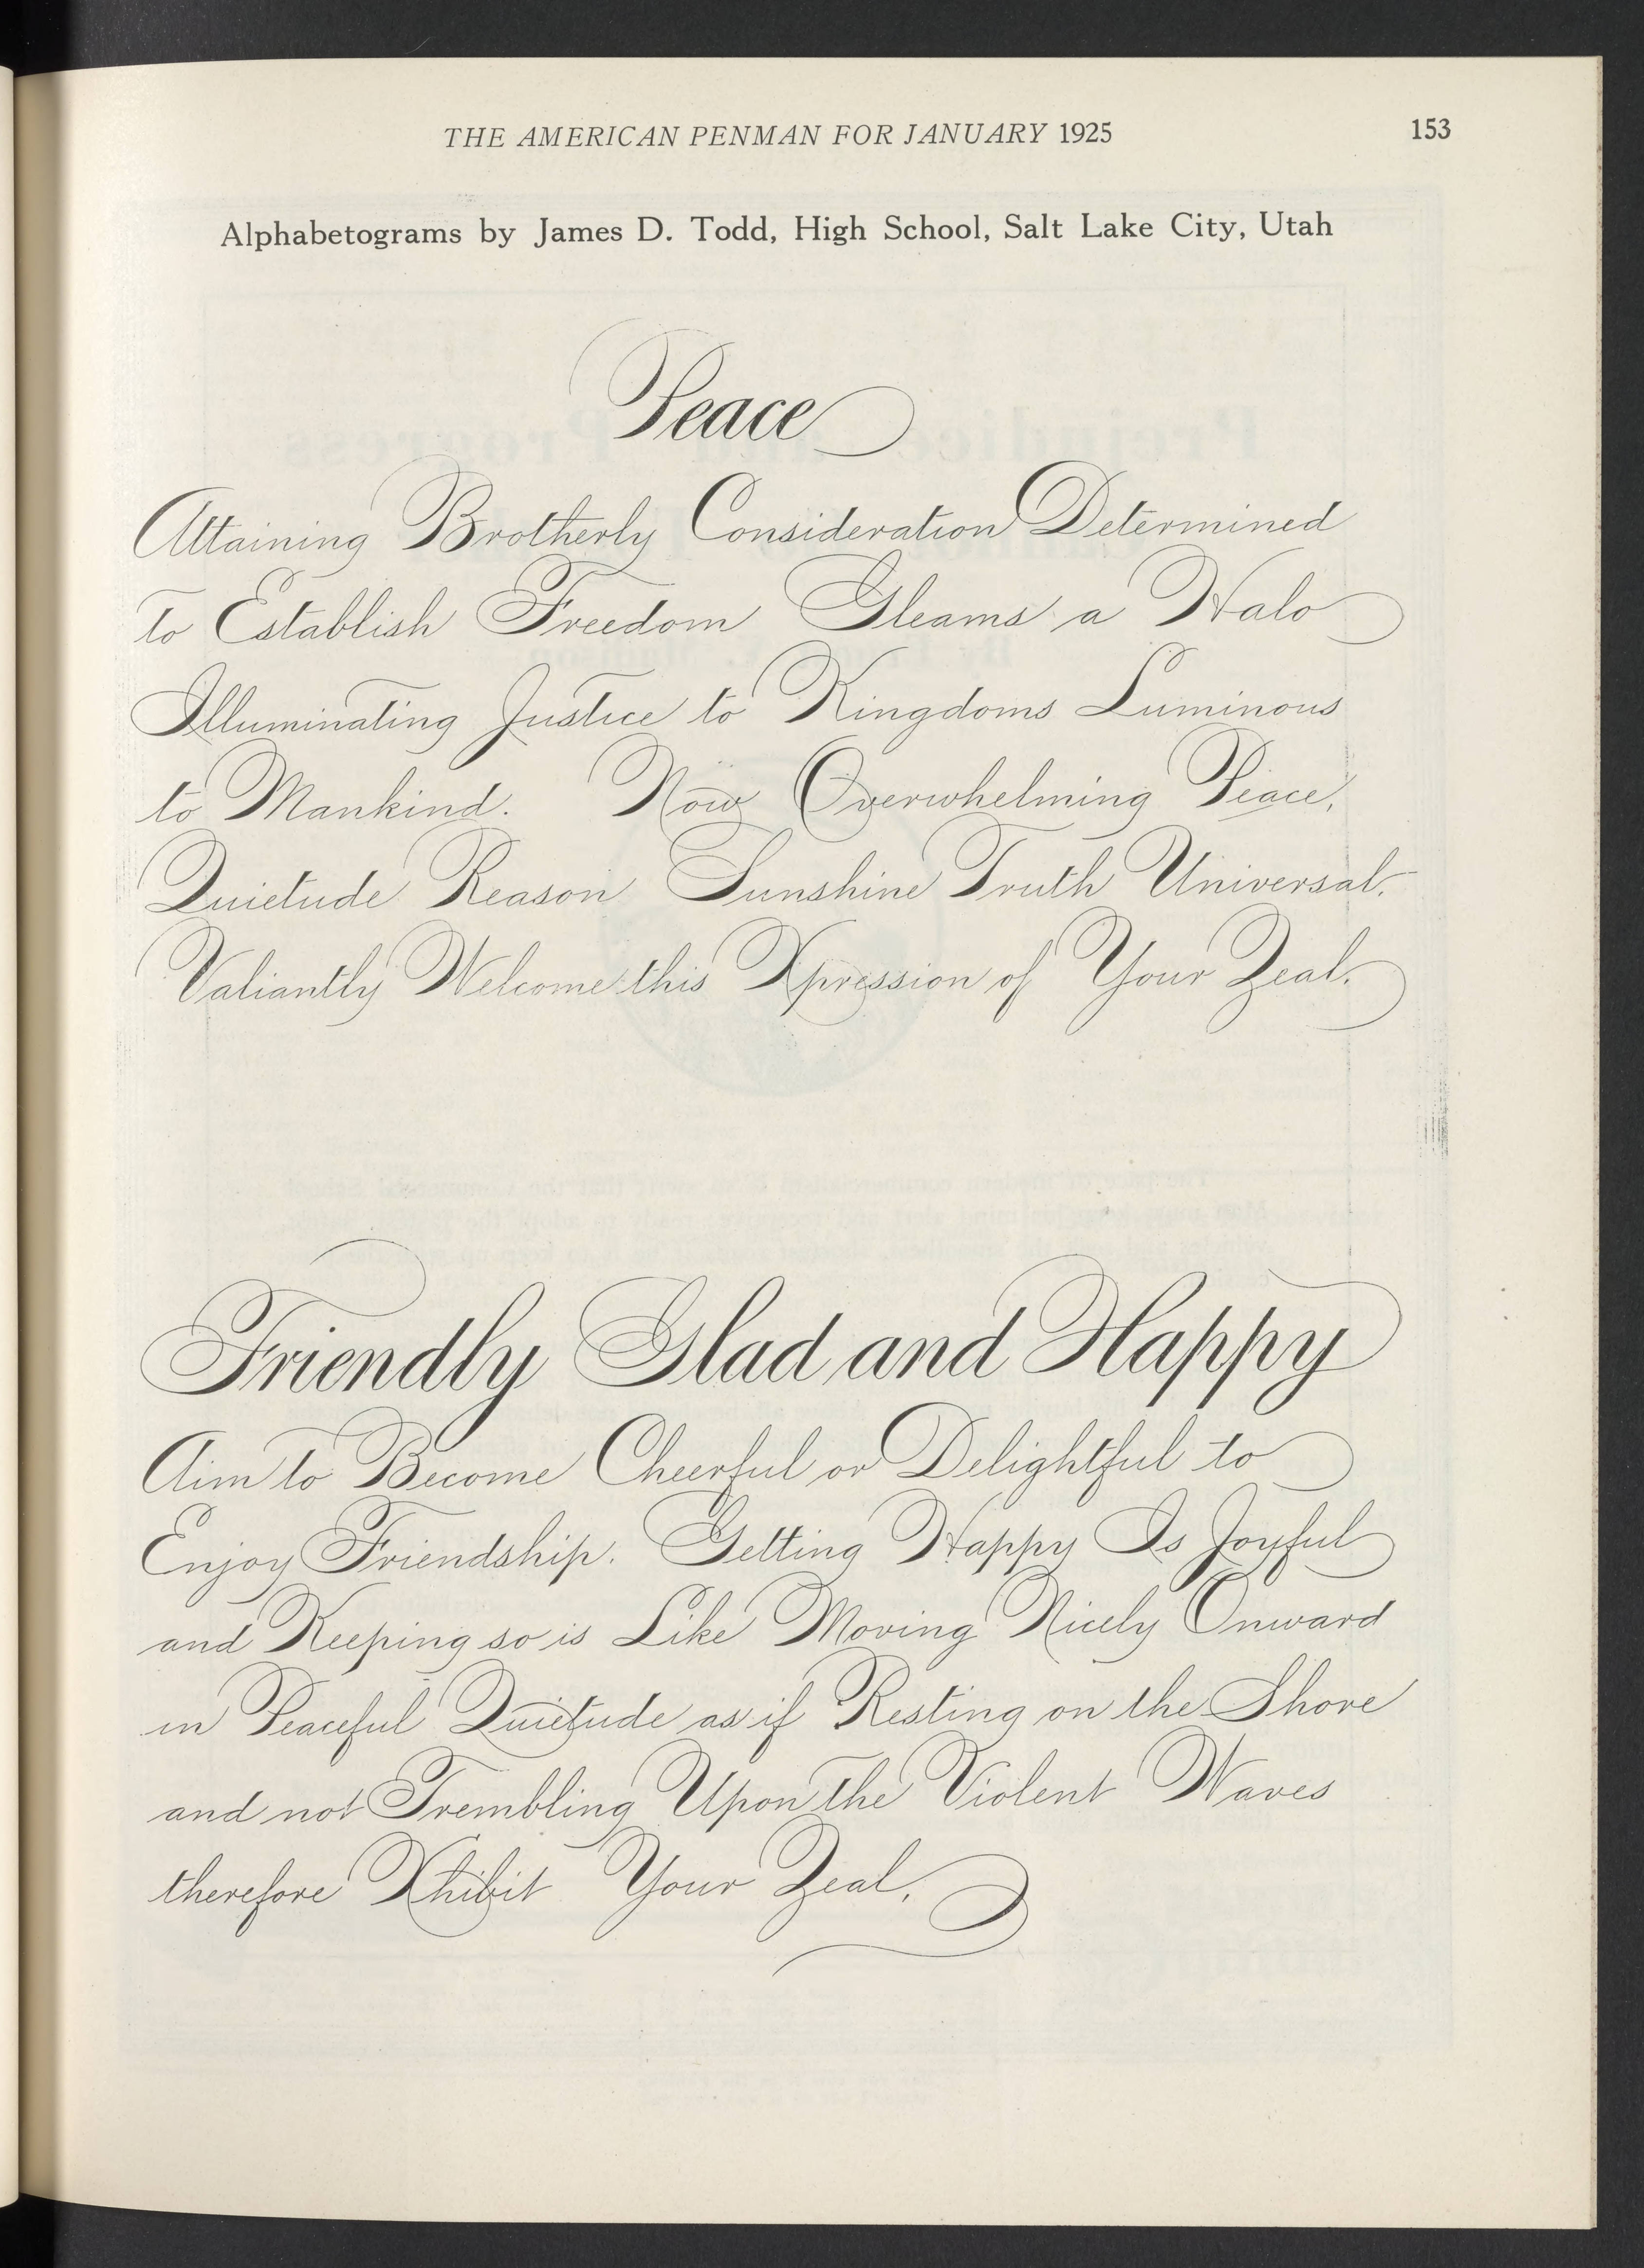 THE AMERICAN PENMAN FOR JANUARY 1925 153
Alphabetograms by James D. Todd, High School, Salt Lake City, Utah
Peace
Attaining Brotherly Consideration Determined
to Establish Freedom Gleams a Halo
Illuminating Justice to Kingdoms Luminous
to Mankind. Now Overwhelming Peace,
Quietude Reason Sunshine Truth Universal.
Valiantly Welcome this Xpression of Your Zeal.
Friendly Glad and Happy
Aim to Become Cheerful or Delightful to
Enjoy Friendship. Getting Happy Is Joyful
and Keeping so is Like Moving Nicely Onward
in Peaceful Quietude as if Resting on the Shore
and not Trembling Upon the Violent Waves
therefore Xhibit Your Zeal.